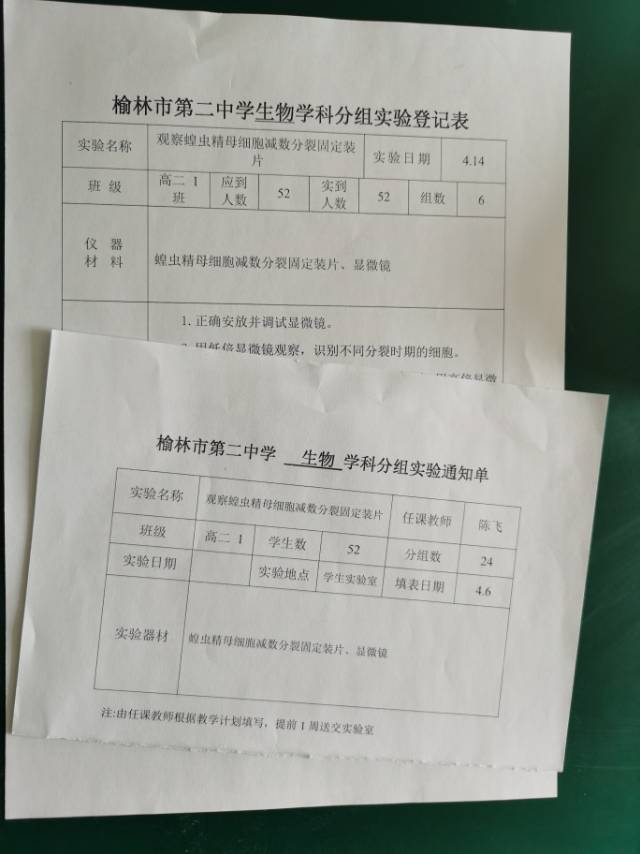 榆林市第二中学生物学科分组实验登记表
实验名称 观察蝗虫精母细胞减数分裂固定装片 实验日期 4.14
班 级 高二 1班 应到人数 52 实到人数 52 组数 6
仪 器材 料 蝗虫精母细胞减数分裂固定装片、显微镜
1. 正确安放并调试显微镜。
用低倍显微镜观察，识别不同分裂时期的细胞。
用高倍显微
榆林市第二中学 生物 学科分组实验通知单
实验名称 观察蝗虫精母细胞减数分裂固定装片 任课教师 陈飞
班级 高二 1 学生数 52 分组数 24
实验日期 实验地点 学生实验室 填表日期 4.6
实验器材 蝗虫精母细胞减数分裂固定装片、显微镜
注:由任课教师根据教学计划填写，提前 1 周送交实验室